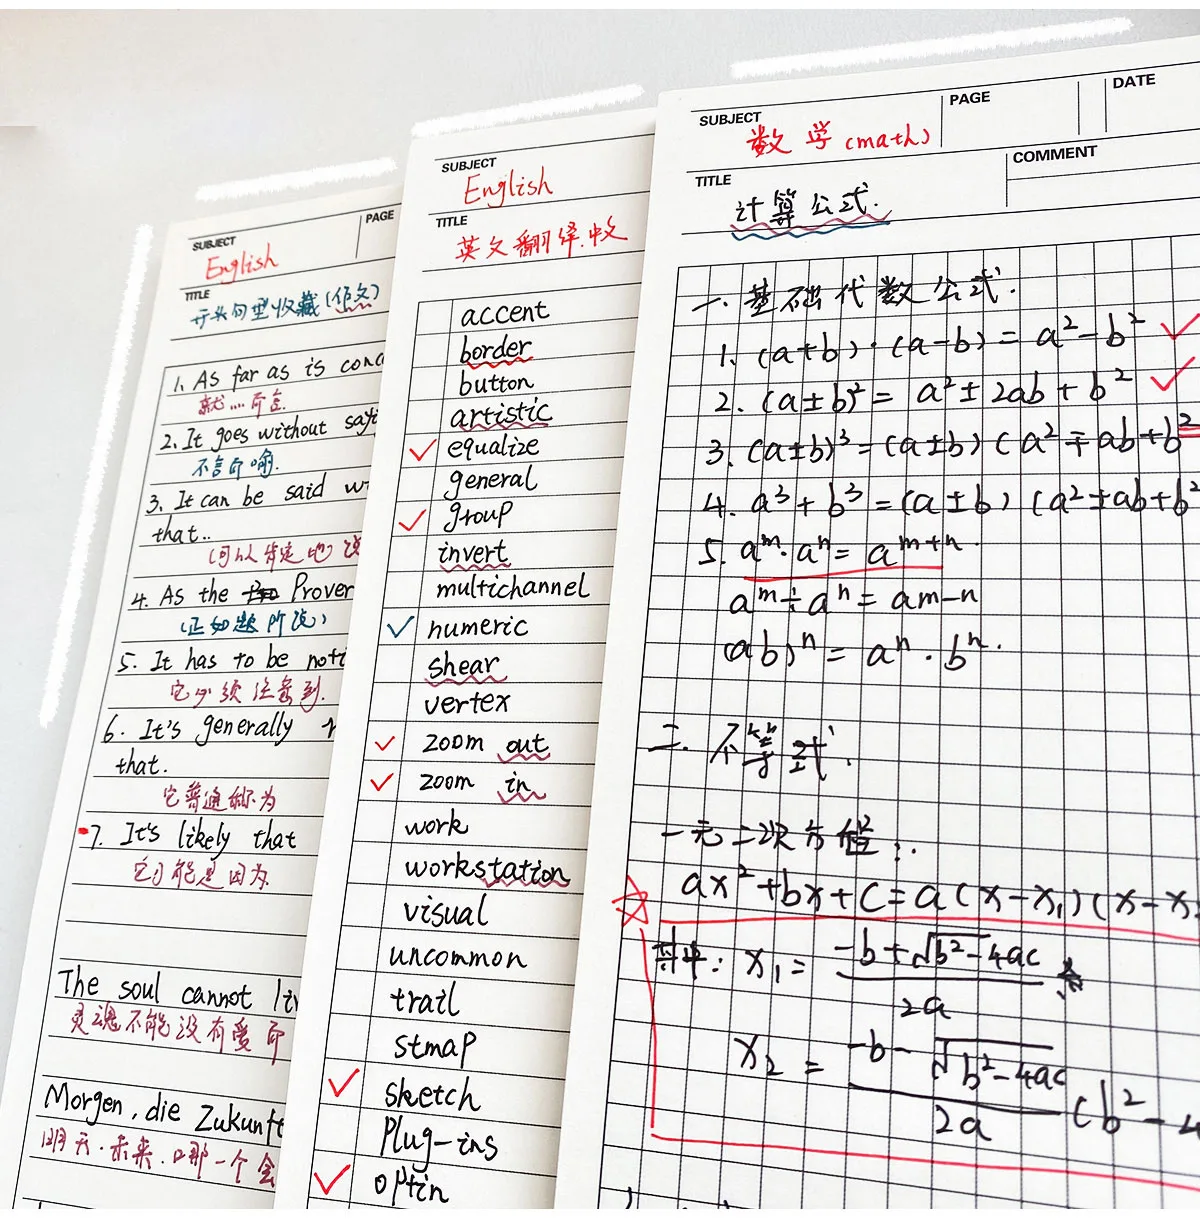 SUBJECT
English
PAGE
TITLE
开头句型收藏(作文)
1. As far as is conc
就....而言.
2. It goes without sayi
不言而喻.
3. It can be said wi
that..
(可以肯定地)说
4. As the Prover
(正如题所说)
5. It has to be noti
它必须注意到.
6. It's generally r
that.
它普通称为
7. It's likely that
它可能是因为
The soul cannot liv
灵魂不能没有爱而
Morgen, die Zukunft
明天.未来.哪一个会
SUBJECT
English
TITLE
英文翻绎.中文
accent
border
button
artistic
equalize
general
group
invert
multichannel
numeric
shear
vertex
zoom out
zoom in
work
workstation
visual
uncommon
trail
stmap
sketch
Plug-ins
optin
SUBJECT
数学(math)
PAGE
DATE
TITLE
计算公式.
COMMENT
一.基础代数公式.
1. (a+b)·(a-b)=a²-b²
2. (a±b)²= a²±2ab+b²
3. (a±b)³=(a±b)(a²∓ab+b²
4. a³+b³=(a±b)(a²±ab+b²
5. aᵐ·aⁿ= aᵐ⁺ⁿ
aᵐ÷aⁿ=am-n
(ab)ⁿ=aⁿ·bⁿ.
二.不等式.
一元二次方程:.
ax²+bx+c=a(x-x₁)(x-x
其中: x₁= -b+√b²-4ac
2a
x₂ = -b-√b²-4ac
2a (b²-4